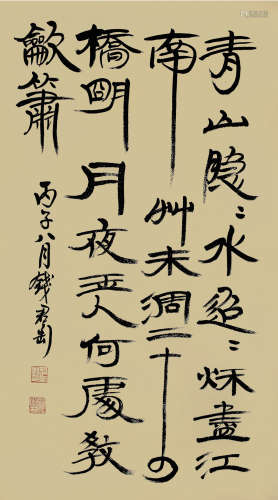 青山隐〻水迢〻秌盡江
南艸未凋二十四
橋朙月夜玉人何處教
龡簫
丙子八月錢君匋